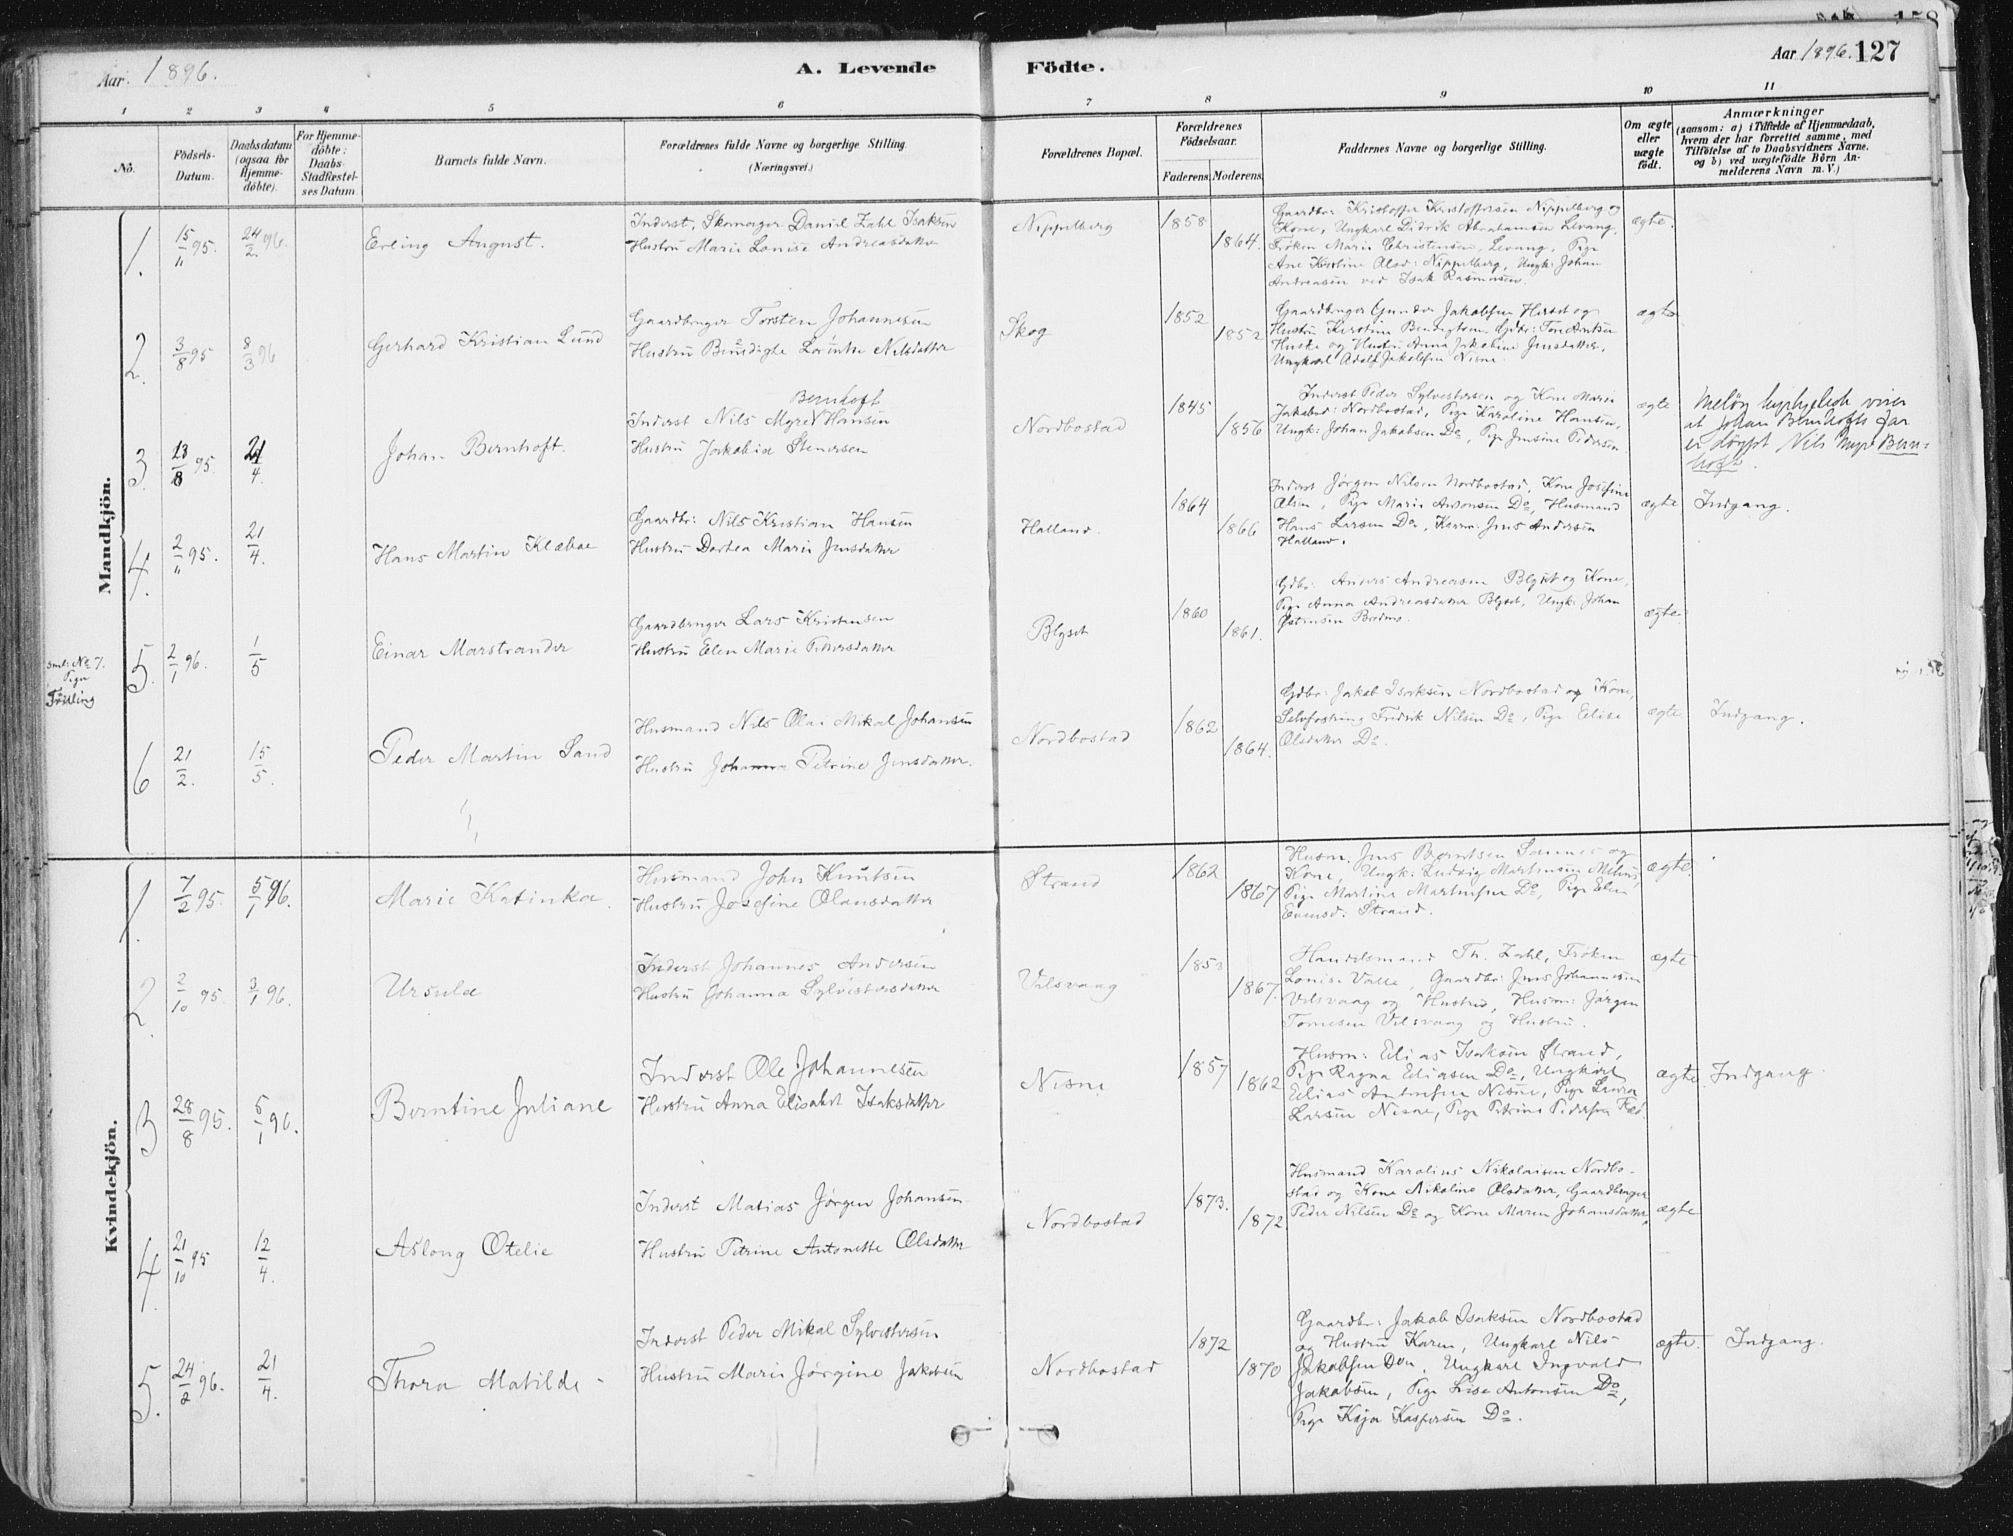 Aar. 1896.
A. Levende
Födte.
Aar 1896. 127
1 2 3 4 5 6 7 8 9 10 11
No.
Födsels-
Datum.
Daabsdatum
(ogsaa for
Hjemme-
döbte).
For Hjemme-
döbte:
Daabs-
Stadfæstel-
ses Datum.
Barnets fulde Navn.
Forældrenes fulde Navne og borgerlige Stilling.
(Næringsvei.)
Forældrenes Bopæl.
Forældrenes
Födselsaar.
Faderens. Moderens.
Faddernes Navne og borgerlige Stilling.
Om ægte
eller
uægte
født.
Anmærkninger
(saasom: a) i Tilfælde af Hjemmedaab,
hvem der har forrettet samme, med
Tilföielse af to Daabsvidners Navne.
og b) ved uægtefödte Börn An-
melderens Navn m. V.)
Mandkjön.
1. 15/11 95. 24/2 96. Erling August.
Inderst, Skomager Daniel Zahl Isaksen
Hustru Marie Lovise Andreasdatter
Nippelberg 1858 1864.
Gaardbr: Kristoffer Kristoffersen Nippelberg og
Kone, Ungkarl Didrik Abrahamsen Levang,
Frøken Marie Christensen, Levang, Pige
Ane Kirstine Olsd: Nippelberg, Ungk: Johan
Andreasen ved Isak Rasmussen.
ægte.
2. 3/8 95 8/3 96 Gerhard Kristian Lund
Gaardbruger Torsten Johannesen
Hustru Benedigte Nilsdatter
Skog 1852 1852
Gaardbruger Gunder Jakobsen og
Hustru Kirstine
Huske og Hustru Anna Jakobine Jensdatter,
Ungkarl Adolf Jakobsen Nesne.
ægte
3. 13/8 95. 21/4. Johan Bernhoft.
Bernhoft
Inderst Nils Myre Hansen
Hustru Jakobia Stenersen
Nordbostad 1845 1856
Inderst Peder Sylvestersen og Kone Marie
Jakobsd: Nordbostad, Pige Karoline Hansen,
Ungk: Johan Jakobsen Do, Pige Jensine Pedersen.
ægte
Meløy
at Johan Bernhofts far
er døypt Nils Myre Bern-
hoft.
4. 2/11 95. 21/4. Hans Martin Klæboe
Gaardbr: Nils Kristian Hansen
Hustru Dortea Marie Jensdatter
Halland. 1864 1866
Inderst Jørgen Nilsen Nordbostad, Kone Josefine
Olsen, Pige Marie Antonsen Do, Husmand
Hans Larsen Do, Jens Andersen
Halland.
ægte Indgang.
sml: No 7.
Pige
Tvilling
5. 2/1 96. 1/5 Einar Marstrander
Gaardbruger Lars Kristensen
Hustru Elen Marie Pettersdatter
Blyset 1860 1861.
Gdbr: Anders Andreasen Blyset og Kone,
Pige Anna Andreasdatter Blyset, Ungk: Johan
Østensen Bredmo.
ægte.
6 21/2. 15/5. Peder Martin Sand
Husmand Nils Olai Mikal Johansen
Hustru Johanna Petrine Jensdatter.
Nordbostad 1862 1864.
Gdbr: Jakob Isaksen Nordbostad og Kone,
Fredrik Nilsen Do, Pige Elise
Olsdatter Do.
ægte Indgang.
Kvindekjön.
1. 7/2 95. 5/1 96. Marie Katinka.
Husmand John Knutsen
Hustru Josefine Olausdatter
Strand 1862 1867
Husm: Jens Berntsen Sannes og
Kone, Ungk: Ludvig Martinsen
Pige Martine Martinsen Do, Pige Elen
Evensd: Strand.
ægte.
2. 2/10 95 3/1 96. Ursula
Inderst Johannes Andersen
Hustru Johanna Sylvestersdatter
Velsvaag 1853 1867.
Handelsmand Th. Zahl, Frøken
Lovise Valle, Gaardbr: Jens Johannesen
Velsvaag og Hustru, Husm: Jørgen
Tomesen Velsvaag og Hustru.
ægte
3 28/8 95. 5/1 96. Berntine Juliane
Inderst Ole Johannesen
Hustru Anna Elisabet Isaksdatter
Nesne 1857 1862
Husm: Elias Isaksen Strand,
Pige Ragna Eliasen Do, Ungkarl
Elias Antonsen Nesne, Pige Laura
Larsen Nesne, Pige Petrine Pedersen
ægte. Indgang.
4. 21/10 95 12/4. Aslong Otelie
Inderst Matias Jørgen Johansen
Hustru Petrine Antonette Olsdatter
Nordbostad 1873. 1872.
Husmand Karolius Nikolaisen Nordbo-
stad og Kone Nikoline Olsdatter, Gaardbruger
Peder Nilsen Do og Kone Maren Johansdatter.
ægte
5. 24/2 96. 21/4. Thora Matilde -
Inderst Peder Mikal Sylvestersen
Hustru Marie Jørgine Jakobsen
Nordbostad 1872 1870
Gaardbr: Jakob Isaksen Nordbostad
og Hustru Karen, Ungkarl Nils
Jakobsen Do, Ungkarl Ingvald
Jakobsen, Pige Lise Antonsen Do,
Pige Kaja Kaspersen Do.
ægte. Indgang.